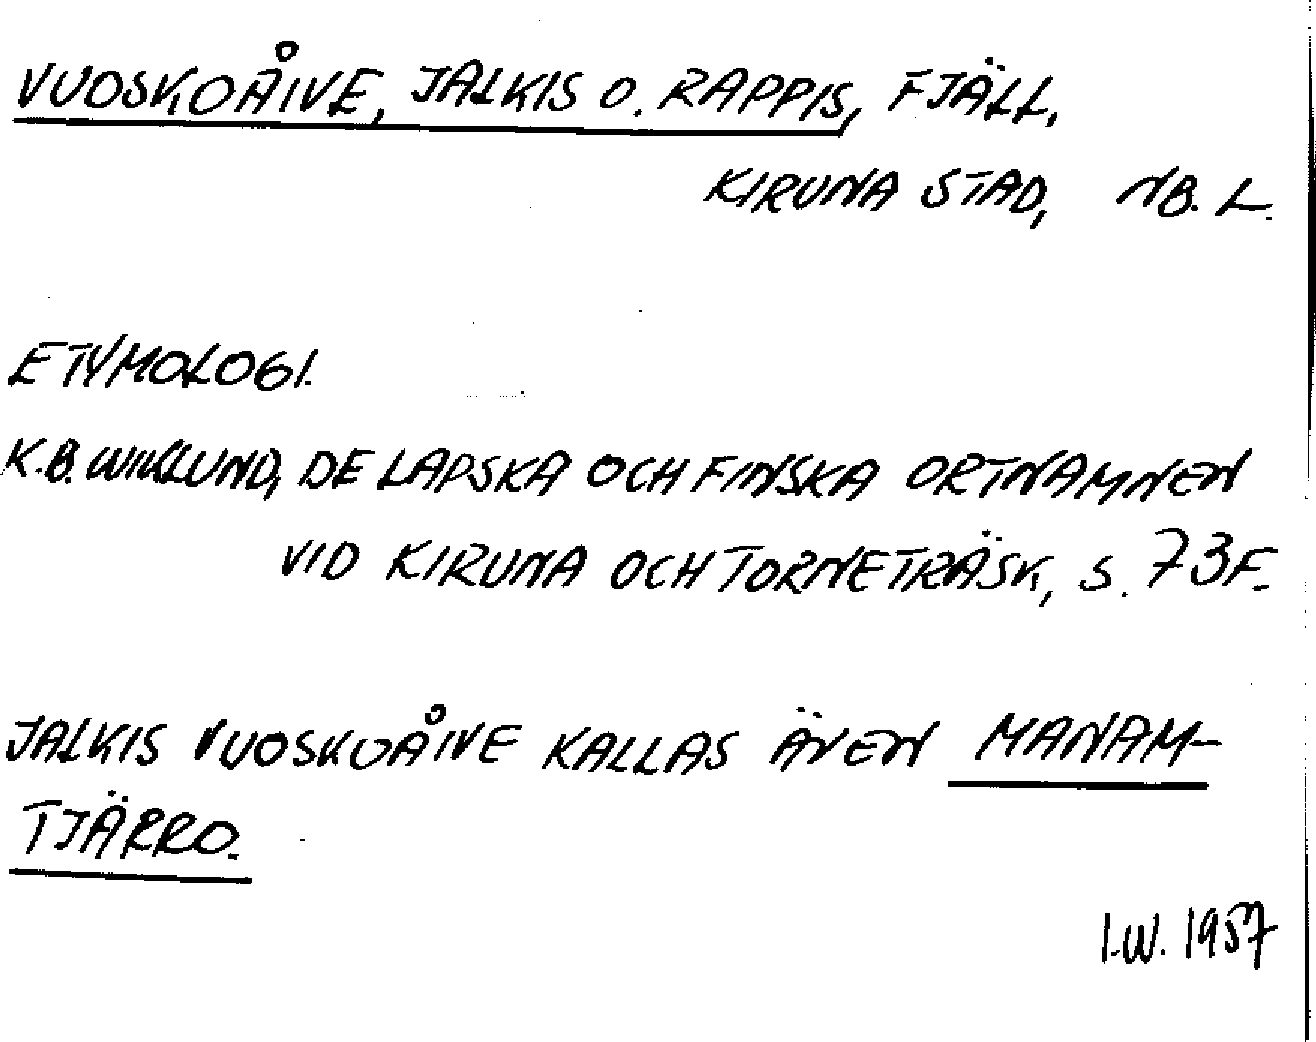 VUOSKOÅIVE, JALKIS O. RAPPIS, FJÄLL,
KIRUNA STAD, NB. L.
ETYMOLOGI.
K.B. WIKLUND, DE LAPSKA OCH FINSKA ORTNAMNEN
VID KIRUNA OCH TORNETRÄSK, S. 73F.
JALKIS VUOSKOÅIVE KALLAS ÄVEN MANAM-
TJÄRRO.
I.W. 1957